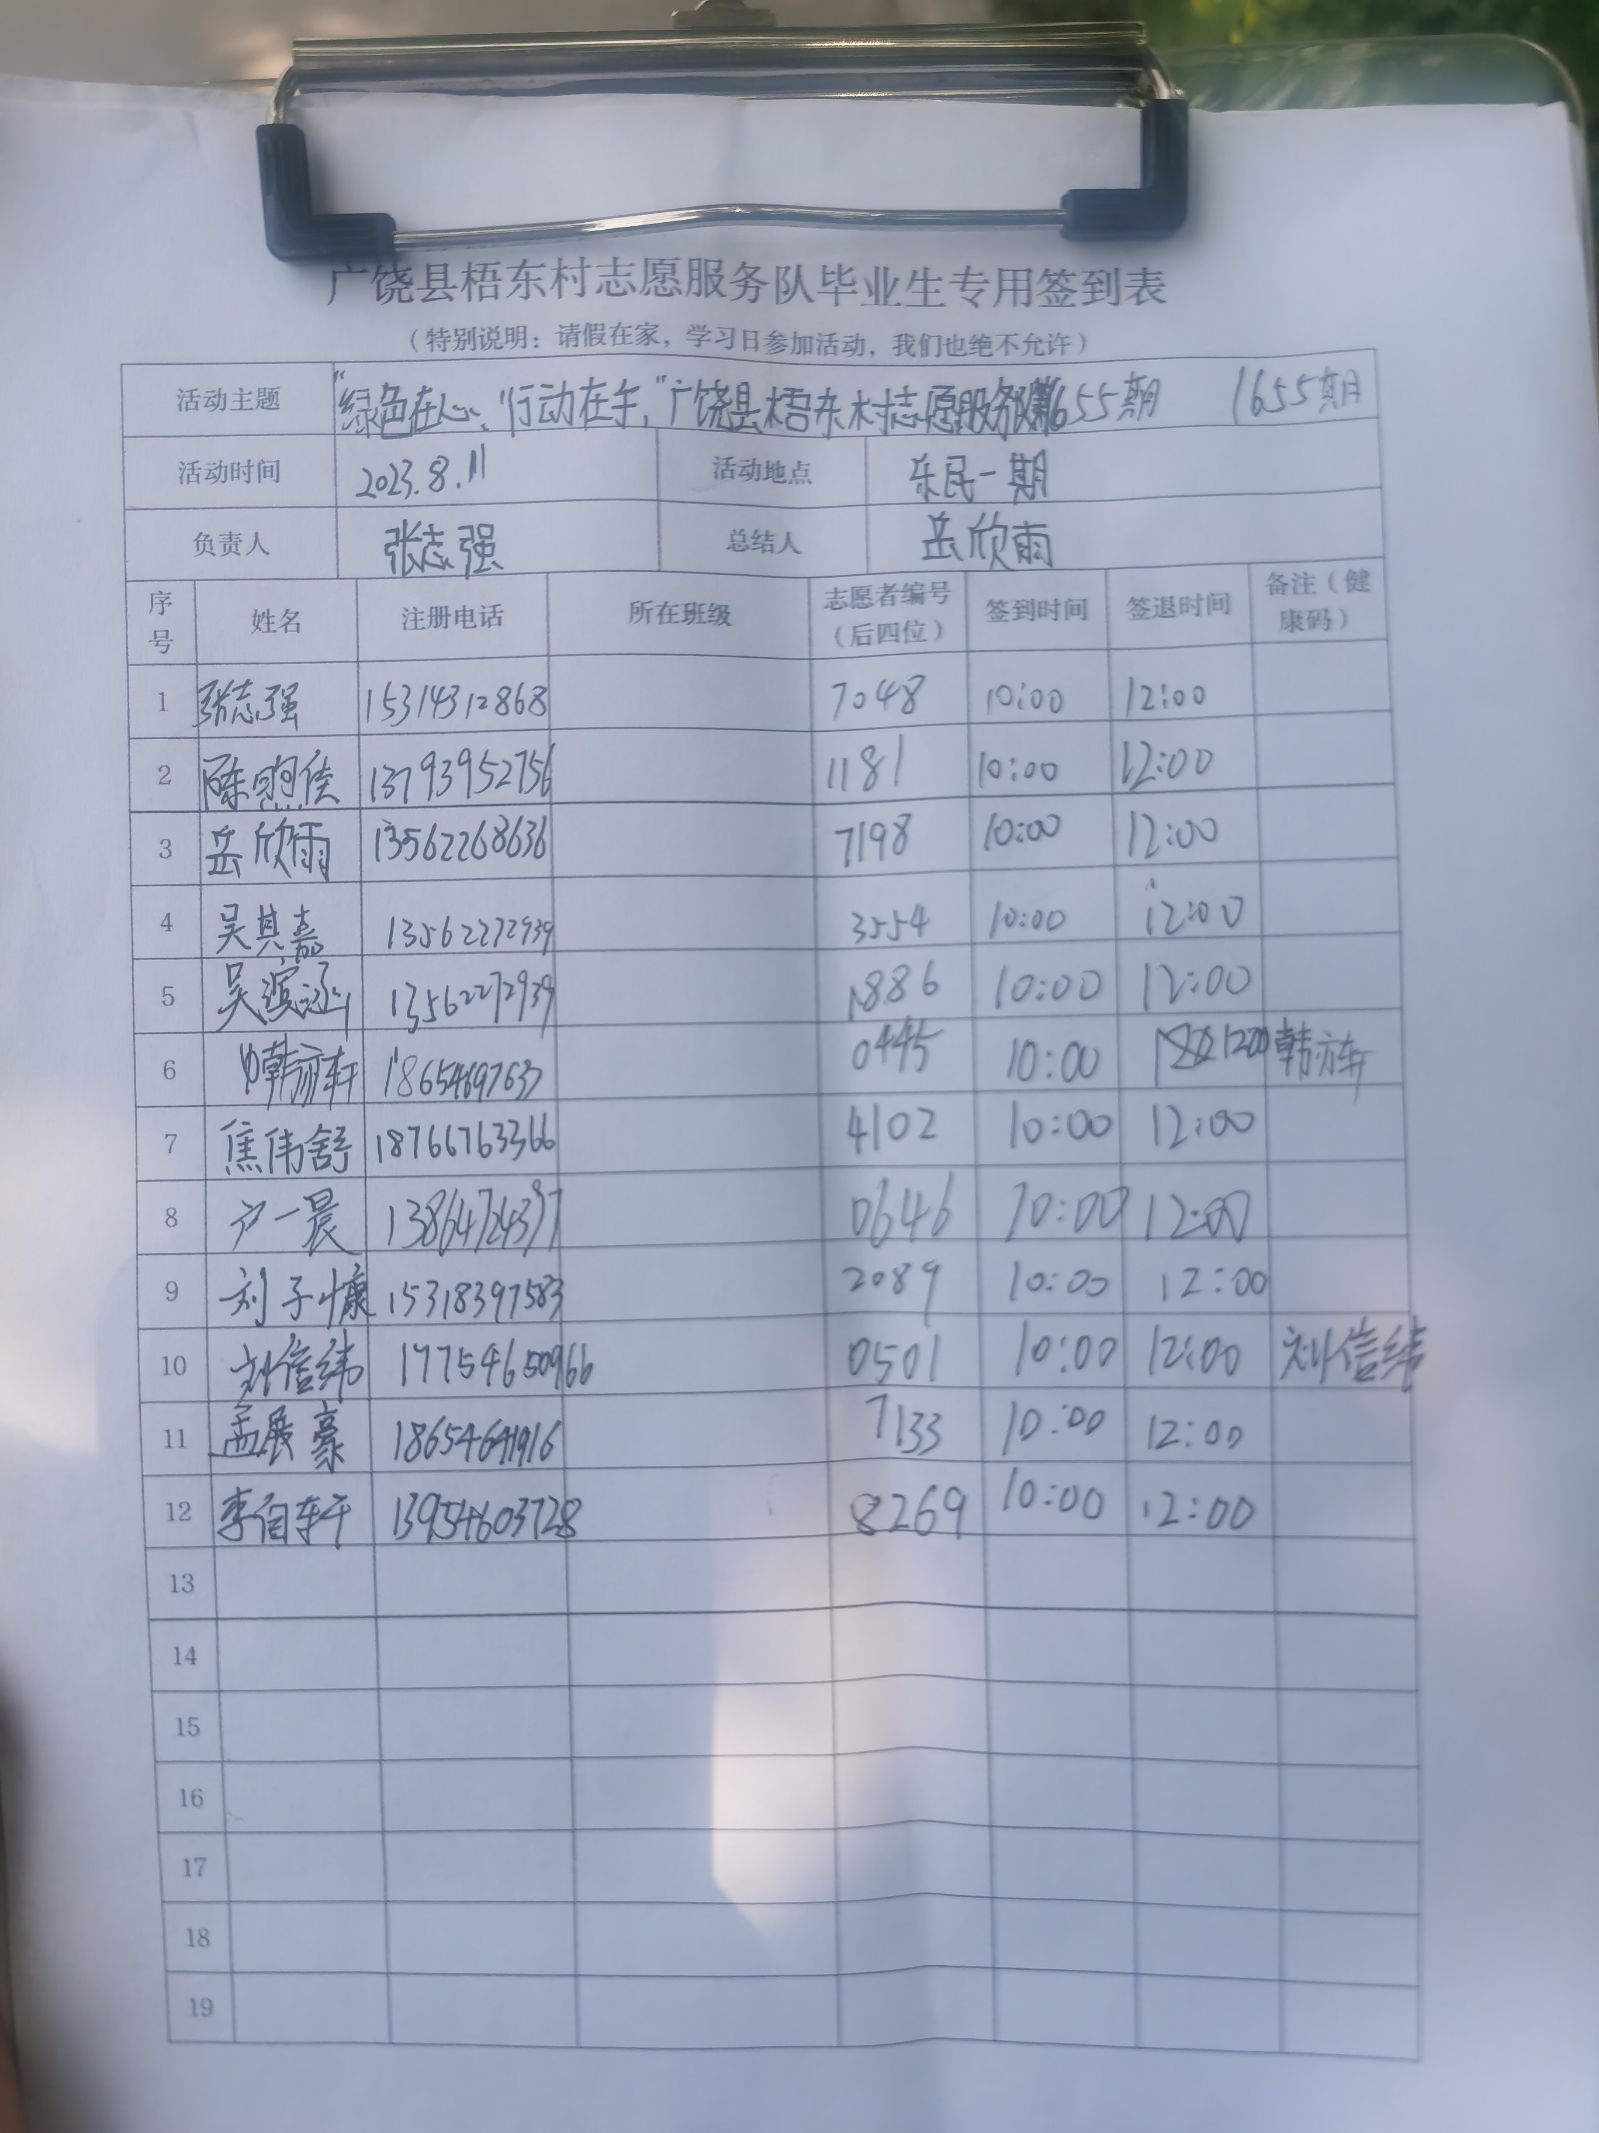 广饶县梧东村志愿服务队毕业生专用签到表
（特别说明：请假在家，学习日参加活动，我们也绝不允许）
活动主题 "绿色在心、行动在午，"广饶县梧东村志愿服务队第1655期 1655期
活动时间 2023.8.11 活动地点 乐民一期
负责人 张志强 总结人 岳欣雨
序号 姓名 注册电话 所在班级 志愿者编号（后四位） 签到时间 签退时间 备注（健康码）
1 张志强 15314312868 7048 10:00 12:00
2 陈煦佳 13793952756 1181 10:00 12:00
3 岳欣雨 13562268636 7198 10:00 12:00
4 吴其嘉 13562272939 3554 10:00 12:00
5 吴滨涵 13562272939 1886 10:00 12:00
6 韩亦轩 18654697633 0445 10:00 1200 韩亦轩
7 焦伟舒 18766763366 4102 10:00 12:00
8 户一晨 13864724397 0646 10:00 12:00
9 刘子慷 15318397583 2089 10:00 12:00
10 刘信纬 17754650966 0501 10:00 12:00 刘信纬
11 孟展豪 18654641916 7133 10:00 12:00
12 李佰轩 13954603728 8269 10:00 12:00
13
14
15
16
17
18
19